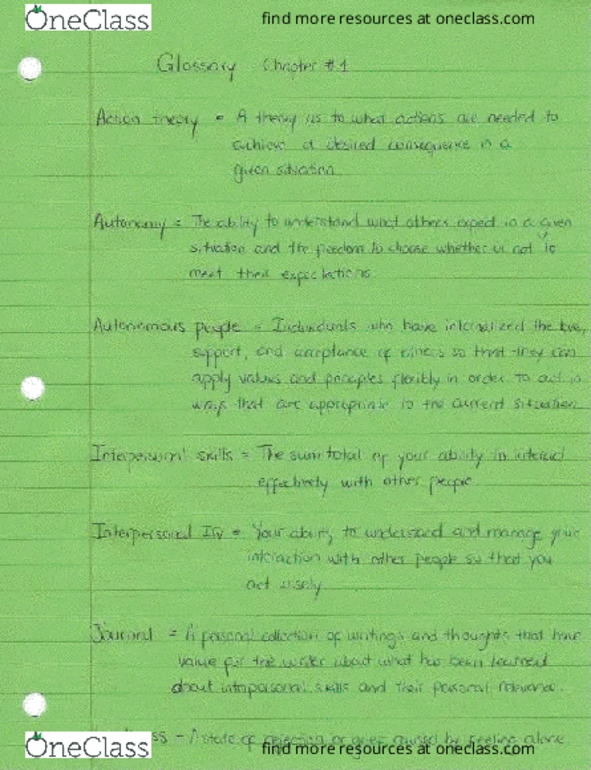 OneClass find more resources at oneclass.com
Glossary Chapter #1
Action theory = A theory as to what actions are needed to
achieve a desired consequence in a
given situation
Autonomy = The ability to understand what others expect in a given
situation and the freedom to choose whether or not to
meet their expectations
Autonomous people = Individuals who have internalized the love,
support, and acceptance of others so that they can
apply values and principles flexibly in order to act in
ways that are appropriate to the current situation
Interpersonal skills = The sum total of your ability to interact
effectively with other people
Interpersonal = Your ability to understand and manage your
interaction with other people so that you
act wisely
Journal = A personal collection of writings and thoughts that have
value for the writer about what has been learned
about interpersonal skills and their personal relevance.
- A state of dejection or grief caused by feeling alone
OneClass find more resources at oneclass.com